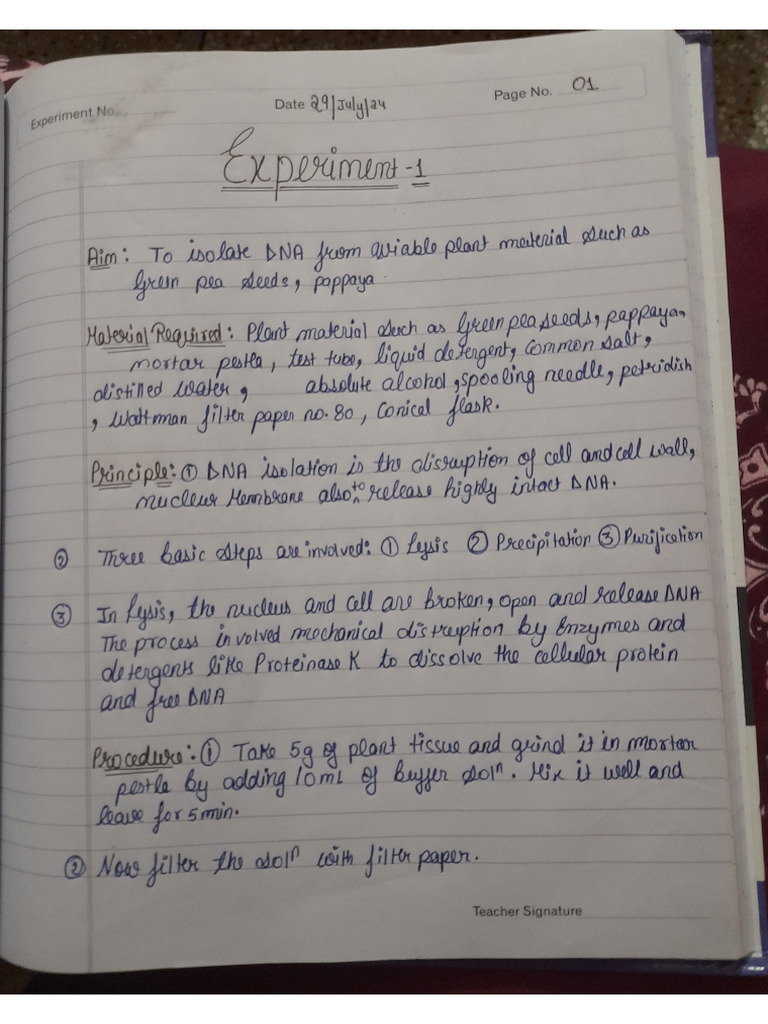 Experiment No.
Date 29/July/24
Page No. 01
Experiment-1
Aim: To isolate DNA from aviable plant material such as
Green pea seeds, pappaya
Material Required: Plant material such as Green pea seeds, pappaya,
mortar pestle, test tube, liquid detergent, common salt,
distilled water, absolute alcohol, spooling needle, petridish
, Wattman filter paper no. 80, Conical flask.
Principle: ① DNA isolation is the disruption of cell and cell wall,
nucleur Membrane also to release highly intact DNA.
② Three basic steps are involved: ① Lysis ② Precipitation ③ Purification
③ In Lysis, the nucleus and cell are broken, open and release DNA
The process involved mechanical distruption by Enzymes and
detergents like Proteinase K to dissolve the cellular protein
and free DNA
Procedure: ① Take 5g of plant tissue and grind it in mortar
pestle by adding 10mL of buffer solⁿ. Mix it well and
leave for 5 min.
② Now filter the solⁿ with filter paper.
Teacher Signature